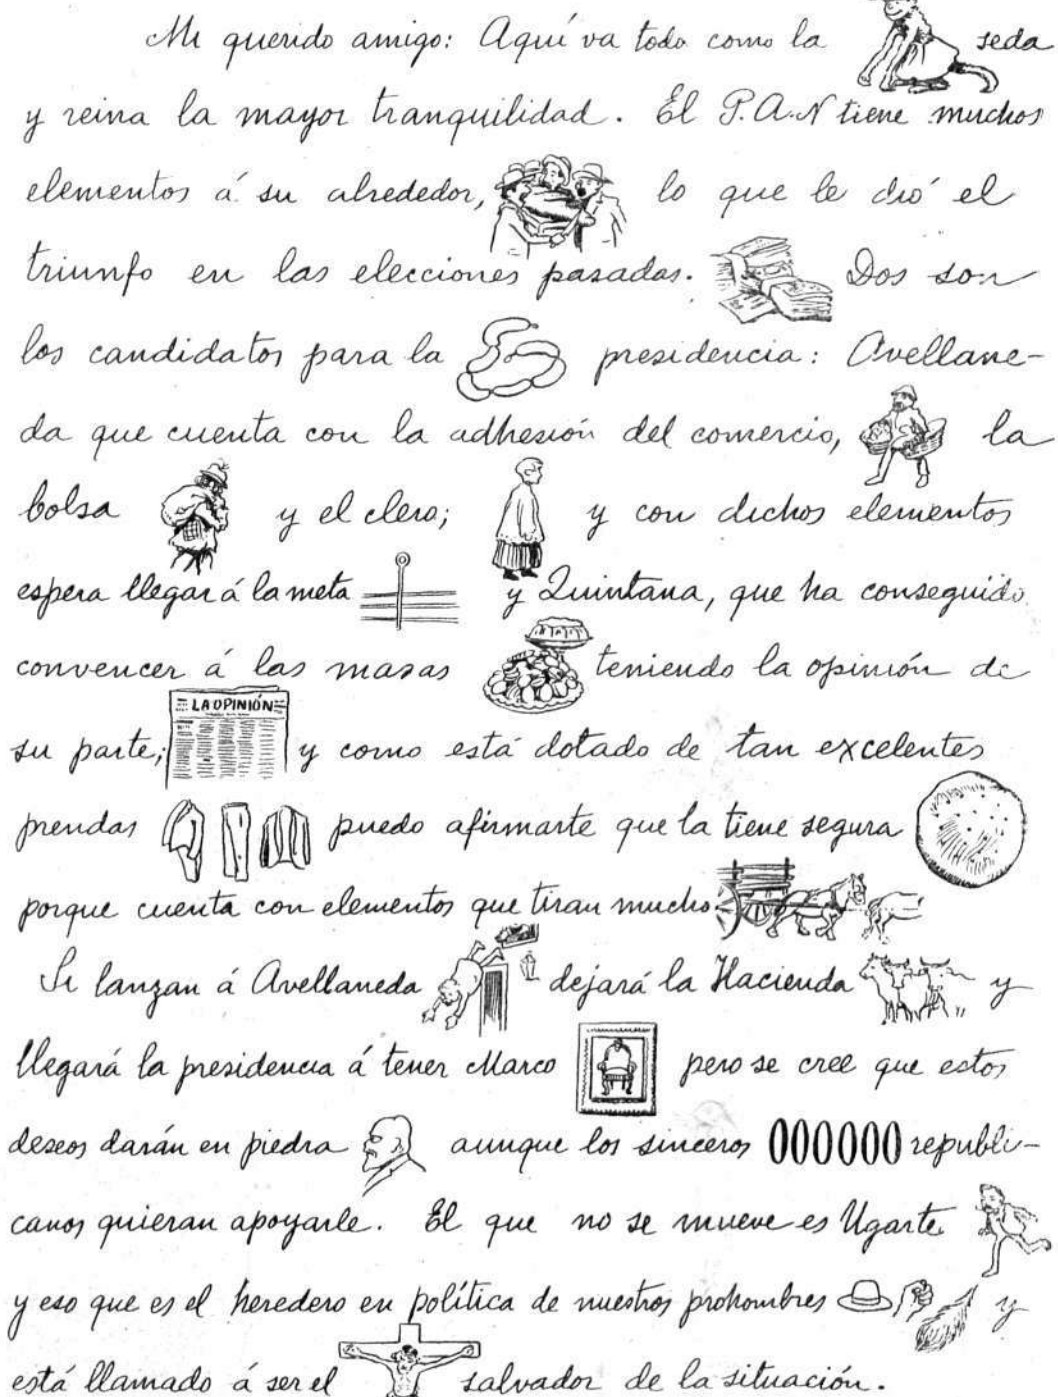 Mi querido amigo: Aquí va todo como la seda
y reina la mayor tranquilidad. El P.A.N tiene muchos
elementos á su alrededor, lo que le dió el
triunfo en las elecciones pasadas. Dos son
los candidatos para la presidencia: Avellane-
da que cuenta con la adhesión del comercio, la
bolsa y el clero; y con dichos elementos
espera llegar á la meta y Quintana, que ha conseguido
convencer á las masas teniendo la opinión de
LA OPINIÓN
su parte; y como está dotado de tan excelentes
prendas puedo afirmarte que la tiene segura
porque cuenta con elementos que tiran mucho.
Si lanzan á Avellaneda dejará la Hacienda y
llegará la presidencia á tener Marco pero se cree que estos
deseos darán en piedra aunque los sinceros 000000 republi-
canos quieran apoyarle. El que no se mueve es Ugarte
y eso que es el heredero en política de nuestros prohombres y
está llamado á ser el salvador de la situación.